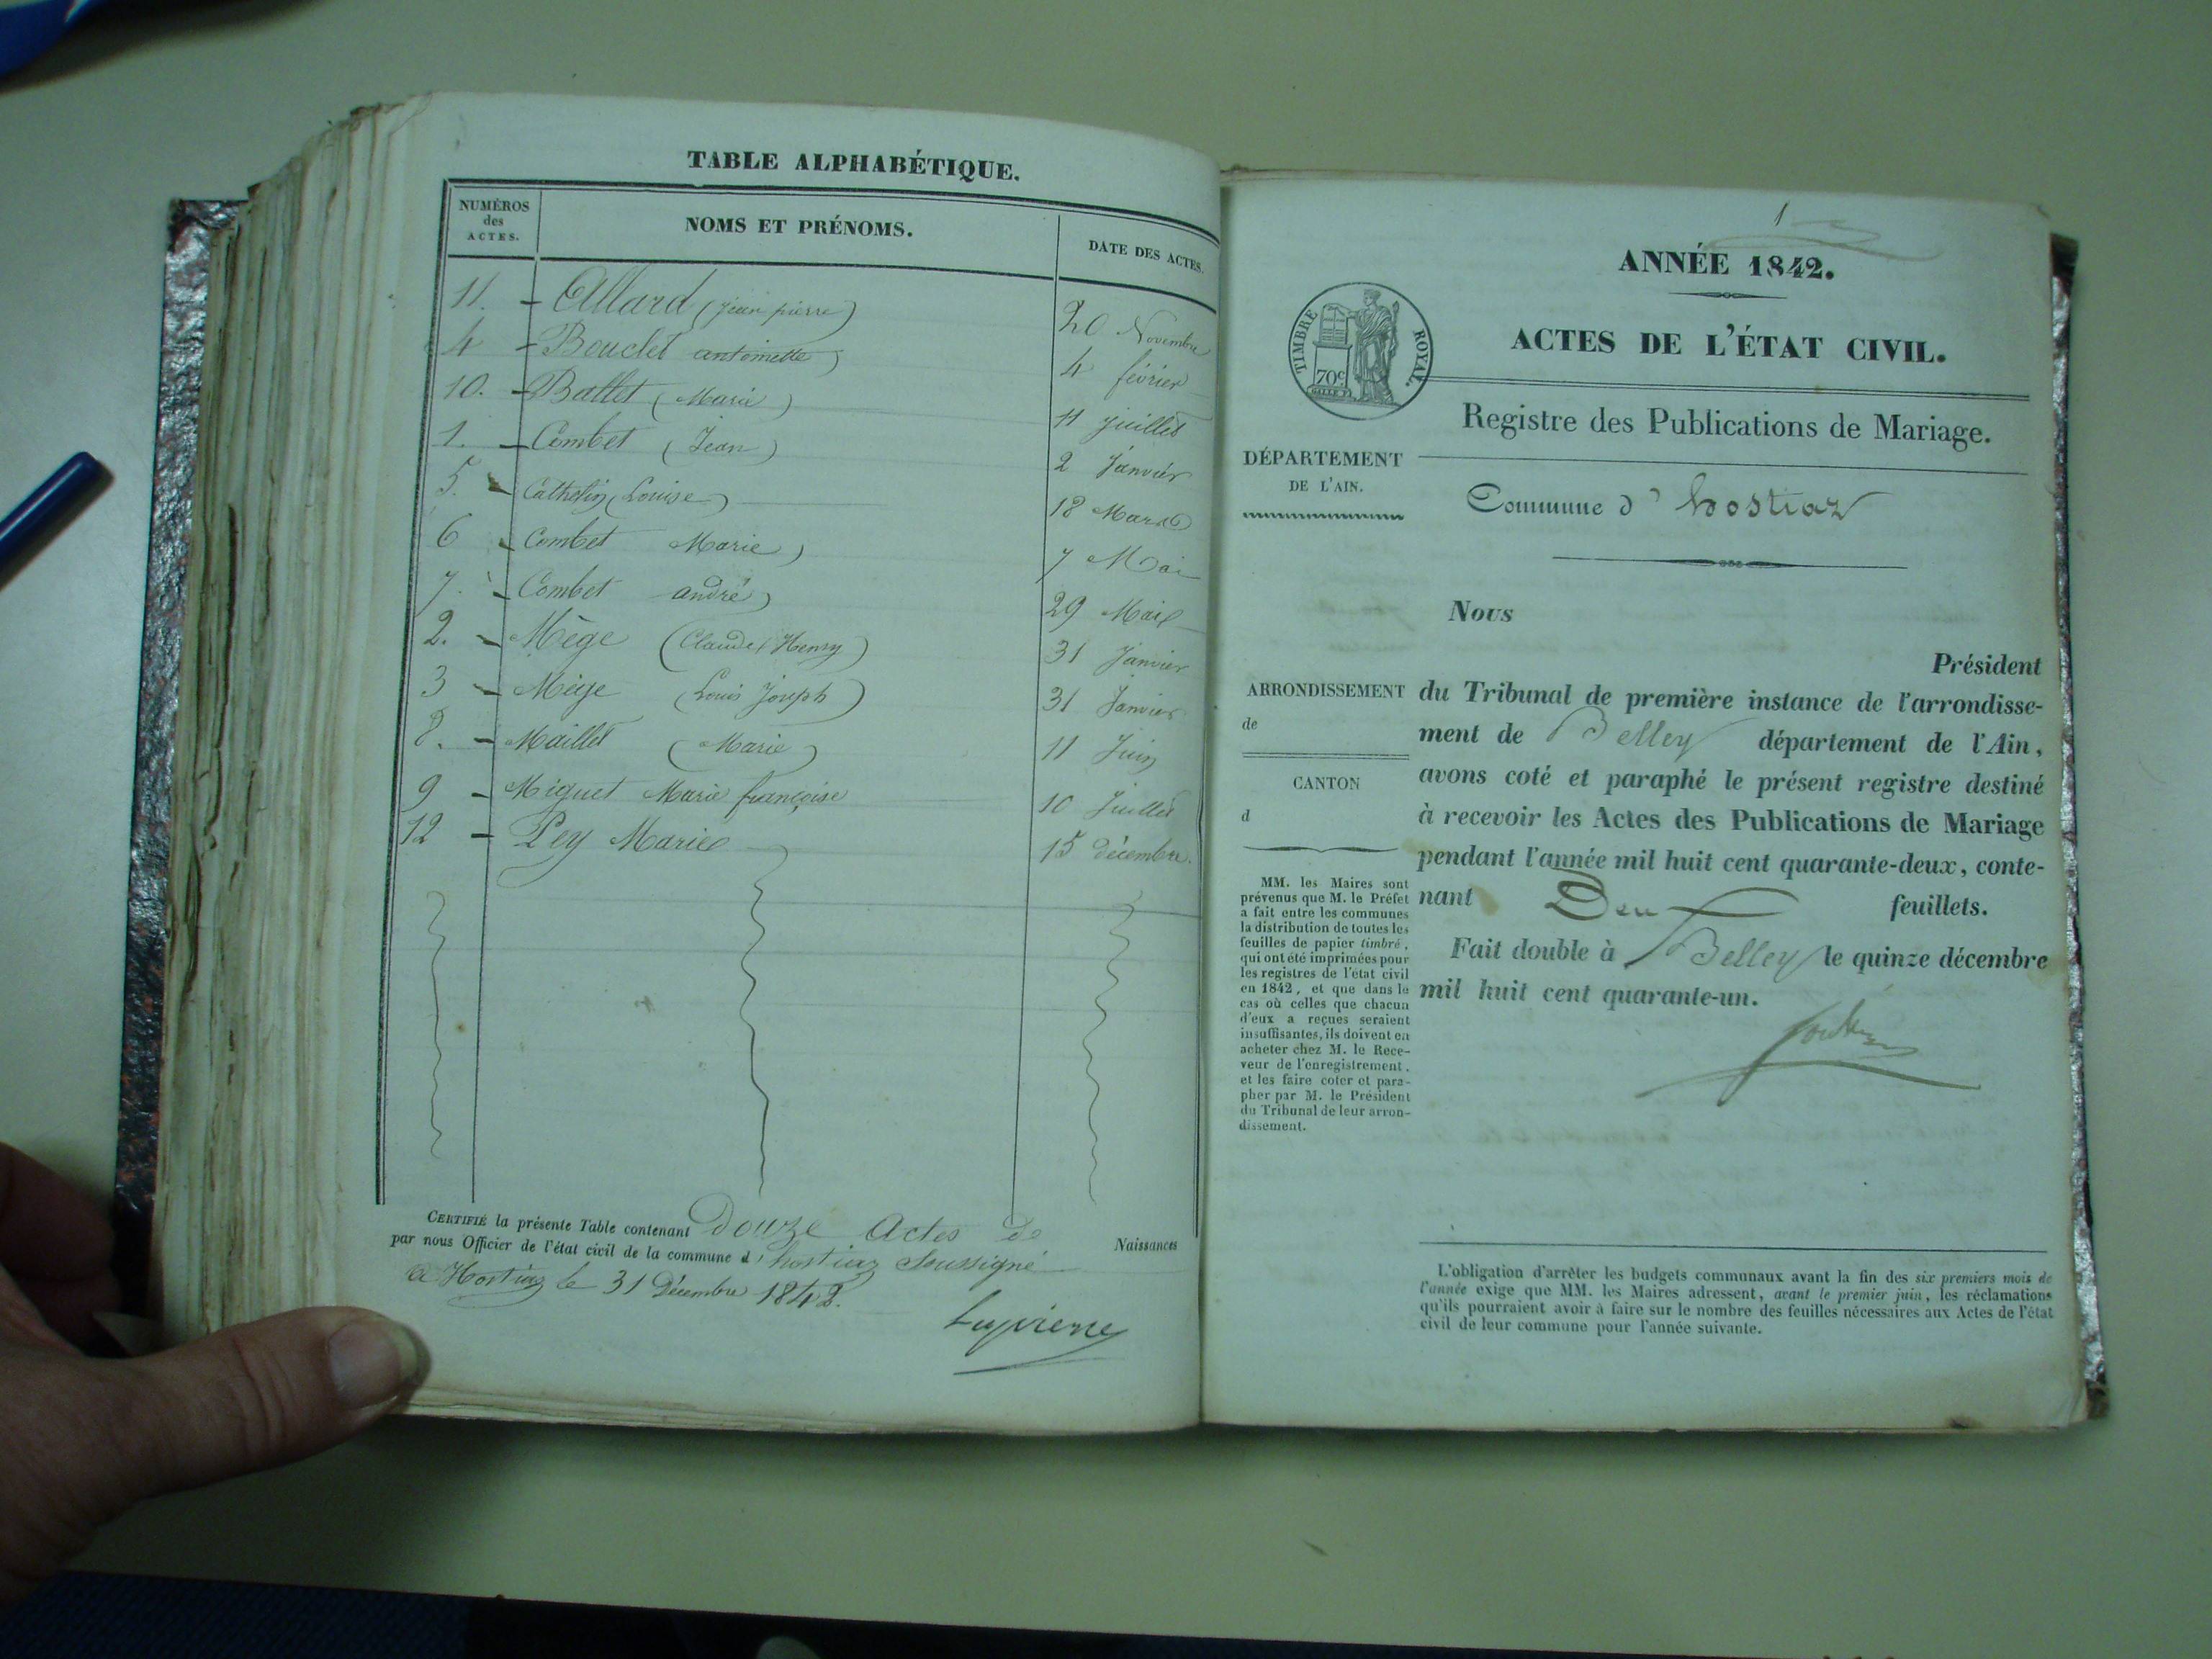 TABLE ALPHABÉTIQUE.
NUMÉROS des ACTES.
NOMS ET PRÉNOMS.
DATE DES ACTES.
11. - Allard (jean pierre) 20 Novembre
4 - Bouclet antoinette) 4 février
10. - Ballet (Marie) 11 juillet
1. - Combet (Jean) 2 Janvier
5. - Cathelin (Louise) 18 Mars
6 - Combet Marie) 7 Mai
7. - Combet andré) 29 Mai
2. - Mège (Claude Henry) 31 Janvier
3 - Mège (Louis Joseph) 31 Janvier
8. - Maillet (Marie) 11 Juin
9 - Miguet Marie françoise 10 Juillet
12 - Pey Marie 15 décembre.
CERTIFIÉ la présente Table contenant Douze Actes de Naissances
par nous Officier de l'état civil de la commune d'hostiaz Soussigné
a Hostiaz le 31 Décembre 1842.
1
ANNÉE 1842.
TIMBRE ROYAL.
70c
ACTES DE L'ÉTAT CIVIL.
Registre des Publications de Mariage.
DÉPARTEMENT
DE L'AIN.
Commune d'hostiaz
Nous
Président
du Tribunal de première instance de l'arrondisse-
ment de Belley département de l'Ain,
avons coté et paraphé le présent registre destiné
à recevoir les Actes des Publications de Mariage
pendant l'année mil huit cent quarante-deux, conte-
nant Deux feuillets.
Fait double à Belley le quinze décembre
mil huit cent quarante-un.
ARRONDISSEMENT
de
CANTON
d
MM. les Maires sont
prévenus que M. le Préfet
a fait entre les communes
la distribution de toutes les
feuilles de papier timbré,
qui ont été imprimées pour
les registres de l'état civil
en 1842, et que dans le
cas où celles que chacun
d'eux a reçues seraient
insuffisantes, ils doivent en
acheter chez M. le Rece-
veur de l'enregistrement,
et les faire coter et para-
pher par M. le Président
du Tribunal de leur arron-
dissement.
L'obligation d'arrêter les budgets communaux avant la fin des six premiers mois de
l'année exige que MM. les Maires adressent, avant le premier juin, les réclamations
qu'ils pourraient avoir à faire sur le nombre des feuilles nécessaires aux Actes de l'état
civil de leur commune pour l'année suivante.